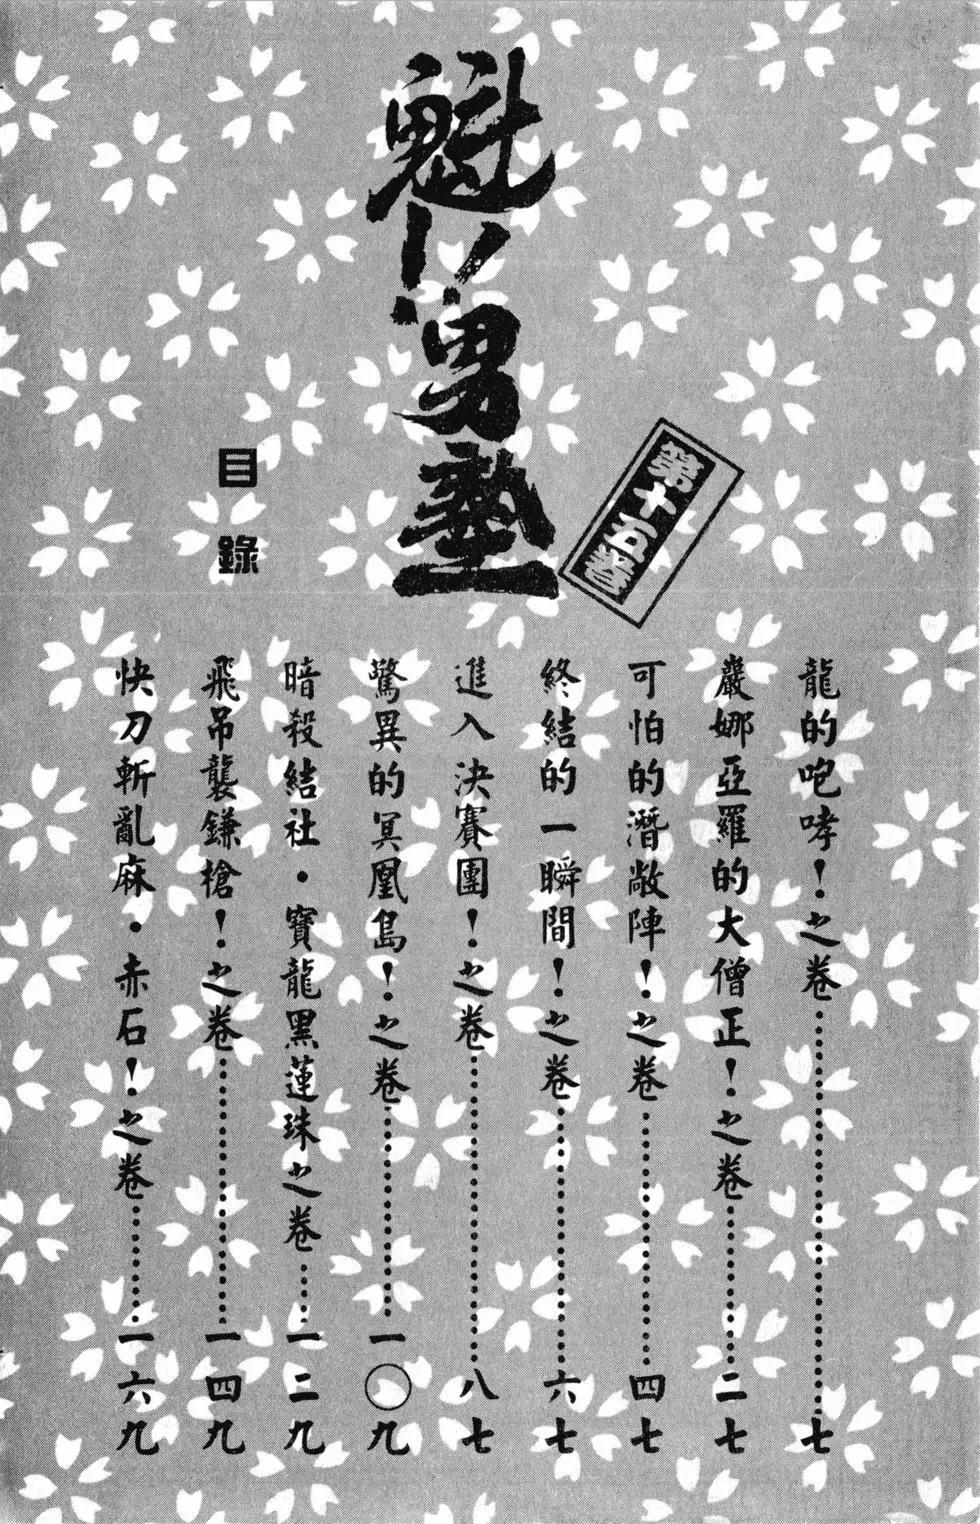 魁!!男塾
第十五卷
目錄
龍的咆哮!之卷……七
嚴娜亞羅的大僧正!之卷……二七
可怕的潛敝陣!之卷……四七
終結的一瞬間!之卷……六七
進入決賽團!之卷……八七
驚異的冥凰島!之卷……一〇九
暗殺結社・寶龍黑蓮珠之卷……一二九
飛吊襲鎌槍!之卷……一四九
快刀斬亂麻・赤石!之卷……一六九